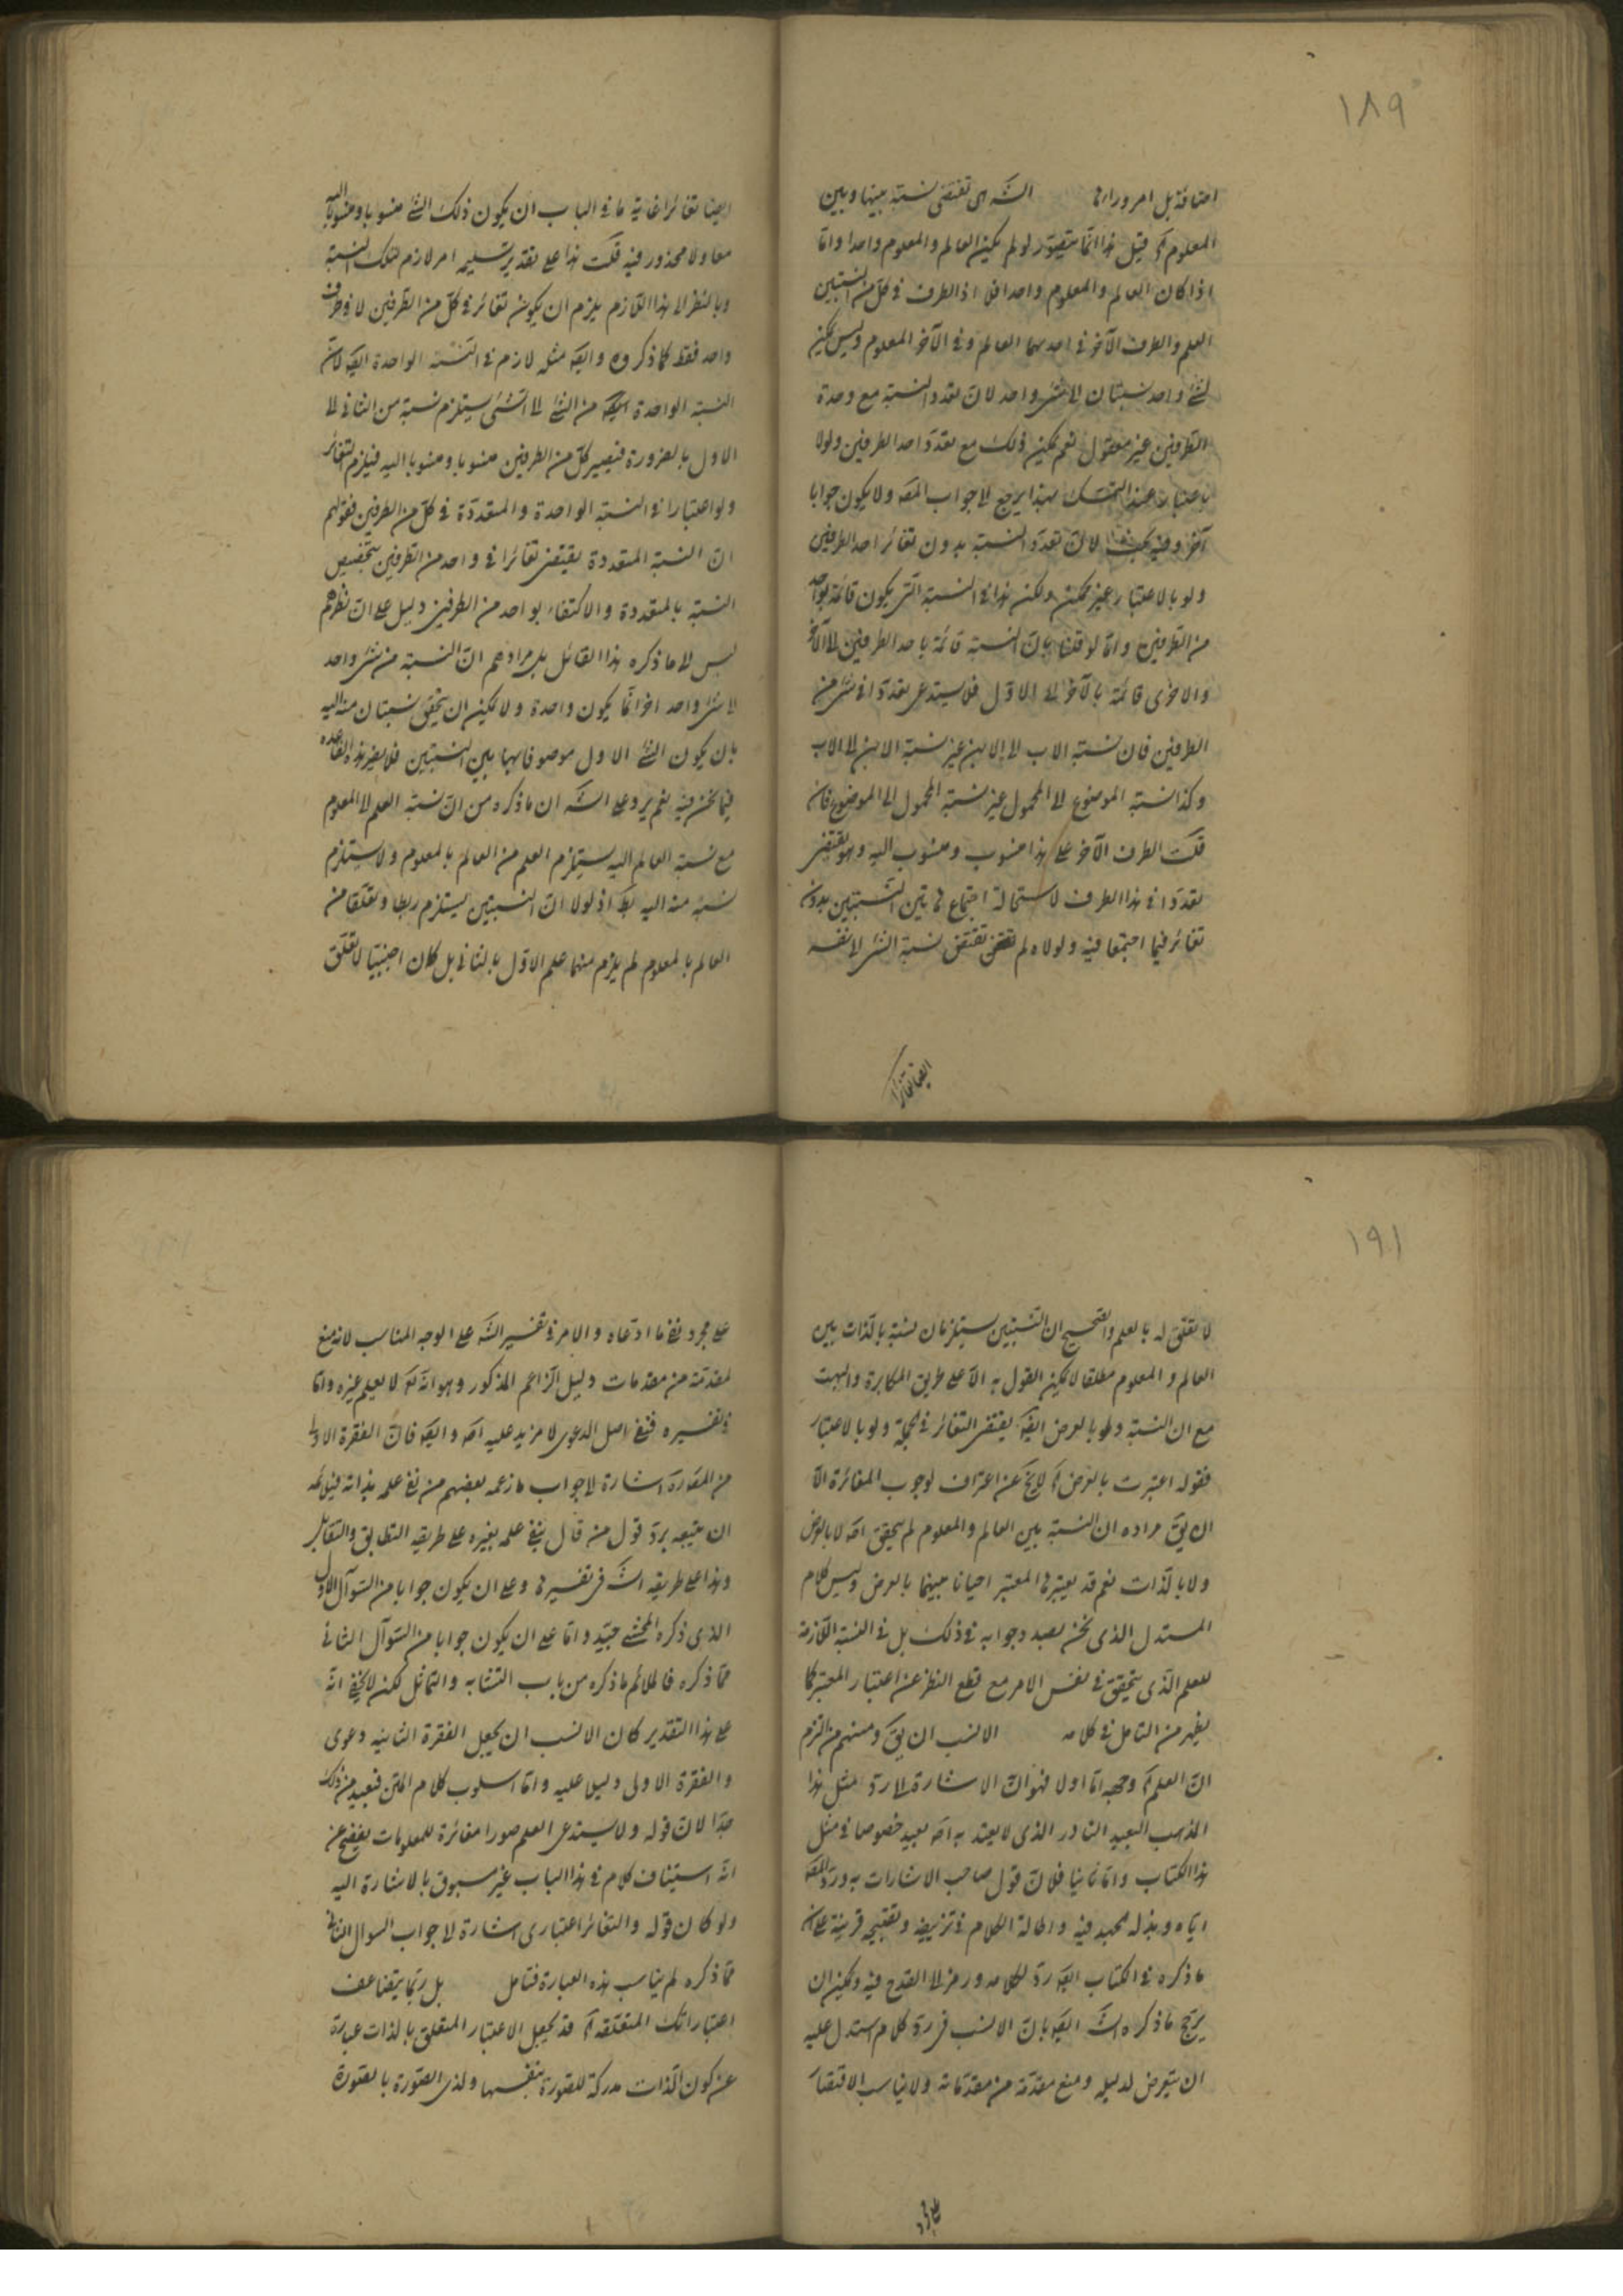 ١٨٩
اضافة بل امر وراءها الش‍ه ای تقتضی نسبة بينها وبين
المعلوم آه قيل هذا انما يتصور لو لم يكن العالم والمعلوم واحدا واما
اذا كان العالم والمعلوم واحدا فلا اذ الطرف فی كل من النسبتين
العلم والطرف الآخر فی احديهما العالم وفی الآخر المعلوم وليس يمكن
لشئ واحد نسبتان الی شئ واحد لان تعدد النسبة مع وحدة
الطرفين غير معقول نعم يمكن ذلك مع تعدد احد الطرفين ولو
باعتبار التمسك بهذا يرجع الی جواب المصه ولا يكون جوابا
آخر وفيه بحث لان تعدد النسبة بدون تغائر احد الطرفين
ولو بالاعتبار غير ممكن ولكن هذا فی النسبة التی يكون قائمة بواحد
من الطرفين واما لو قلنا بان النسبة قائمة باحد الطرفين الی الآخر
والاخری قائمة بالآخر الی الاول فلا يستدعی تعددا فی شئ من
الطرفين فان نسبة الاب الی الابن غير نسبة الابن الی الاب
وكذا نسبة الموضوع الی المحمول غير نسبة المحمول الی الموضوع فان
قلت الطرف الآخر علی هذا منسوب ومنسوب اليه وهو يقتضی
تعددا فی هذا الطرف لاستحالة اجتماع هاتين النسبتين بدون
تغائر فيما اجتمعا فيه ولولاه لم تقتضی نسبة الشئ الی نفسه
ايضا تغائرا
ايضا تغائرا غاية ما فی الباب ان يكون ذلك الشئ منسوبا ومنسوبا اليه
معا ولا محذور فيه قلت هذا علی تقدير تسليمه امر لازم لتلك النسبة
وبالنظر الی هذا اللازم يلزم ان يكون تغائر فی كل من الطرفين لا فی طرف
واحد فقط كما ذكروه وايضه مثله لازم فی النسبة الواحدة ايضه لان
النسبة الواحدة من الشئ الی الشئ يستلزم نسبة من الثانی الی
الاول بالضرورة فيصير كل من الطرفين منسوبا ومنسوبا اليه فيلزم التغائر
ولو اعتبارا فی النسبة الواحدة والمتعددة فی كل من الطرفين فقولهم
ان النسبة المتعددة يقتضی تغائرا فی واحد من الطرفين بتخصيص
النسبة بالمتعددة والاكتفاء بواحد من الطرفين دليل علی ان نظرهم
ليس الی ما ذكره هذا القائل بل مرادهم ان النسبة من شئ واحد
الی شئ واحد آخر انما يكون واحدة ولا يمكن ان يتحقق نسبتان منه اليه
بان يكون الشئ الاول موصوفا بهاتين النسبتين فلا يضر هذه القاعدة
فيما نحن فيه نعم يرد علی الش‍ه ان ما ذكره من ان نسبة العلم الی المعلوم
مع نسبة العالم اليه يستلزم العلم من العالم بالمعلوم ولا يستلزم
نسبة منه اليه بط اذ لولا ان النسبتين يستلزم ربطا وتعلقا من
العالم بالمعلوم لم يلزم منهما علم الاول بالثانی بل كان اجنبيا لا تعلق
١٩١
لا تعلق له بالعلم والصحيح ان النسبتين يستلزمان نسبة بالذات بين
العالم والمعلوم مطلقا لا يمكن القول به الا علی طريق المكابرة والبهت
مع ان النسبة ولو بالعرض ايضه يقتضی التغائر فی الجملة ولو بالاعتبار
فقوله اعتبرت بالعرض آه لا يخ عن اعتراف لوجوب المغائرة الا
ان يق مراده ان النسبة بين العالم والمعلوم لم يتحقق اصه لا بالعرض
ولا بالذات نعم قد يعتبرها المعتبر احيانا بينهما بالعرض وليس كلام
المستدل الذی نحن بصدد جوابه فی ذلك بل فی النسبة اللازمة
للعلم الذی يتحقق فی نفس الامر مع قطع النظر عن اعتبار المعتبر كما
يظهر من التامل فی كلامه الانسب ان يق ومنهم من التزم
ان العلم آه وجهه اما اولا فهو ان الاشارة الی رد مثل هذا
المذهب البعيد النادر الذی لا يعتد به اصه بعيد خصوصا فی مثل
هذا الكتاب واما ثانيا فلان قول صاحب الاشارات به ورد المصه
اياه وبذله جهده فيه واطالة الكلام فی تزييفه وتقبيحه قرينة علی ان
ما ذكره فی الكتاب ايضه رد لكلامه ورمز الی القدح فيه ويمكن ان
يرجح ما ذكره الش‍ه ايضه بان الانسب فی رد كلام استدل عليه
ان يتعرض لدليله ومنع مقدمة من مقدماته ولا يناسب الاقتصار
علی مجرد
علی مجرد نفی ما ادعاه والامر فی تفسير الش‍ه علی الوجه المناسب لانه منع
لمقدمة من مقدمات دليل الزاعم المذكور وهو انه تعه لا يعلم غيره واما
فی تفسيره فمنع اصل الدعوی لا مزيد عليه اصه وايضه فان الفقرة الاولی
من المقه اشارة الی جواب ما زعمه بعضهم من نفی علمه بذاته فيلائمه
ان يتبعه برد قول من قال بنفی علمه بغيره علی طريقه التطابق والتقابل
وهذا علی طريقه الش‍ه فی تفسيرها وعلی ان يكون جوابا من السؤال الاول
الذی ذكره المحشی جيد واما علی ان يكون جوابا من السؤال الثانی
مما ذكره فالملائم ما ذكره من باب التشابه والتماثل لكن لا يخفی انه
علی هذا التقدير كان الانسب ان يجعل الفقرة الثانيه دعوی
والفقرة الاولی دليلا عليه واما اسلوب كلام المتن فبعيد من ذلك
جدا لان قوله ولا يستدعی العلم صورا مغائرة للمعلومات يفصح عن
انه استيناف كلام فی هذا الباب غير مسبوق بالاشارة اليه
ولو كان قوله والتغائر اعتباری اشارة الی جواب السؤال الثانی
مما ذكره لم يناسب هذه العبارة فتامل بل ربما يتضاعف
اعتباراتك المتعلقه آه قد يجعل الاعتبار المتعلق بالذات عبارة
عن كون الذات مدركة للصورة بنفسها ولذی الصورة بالصورة